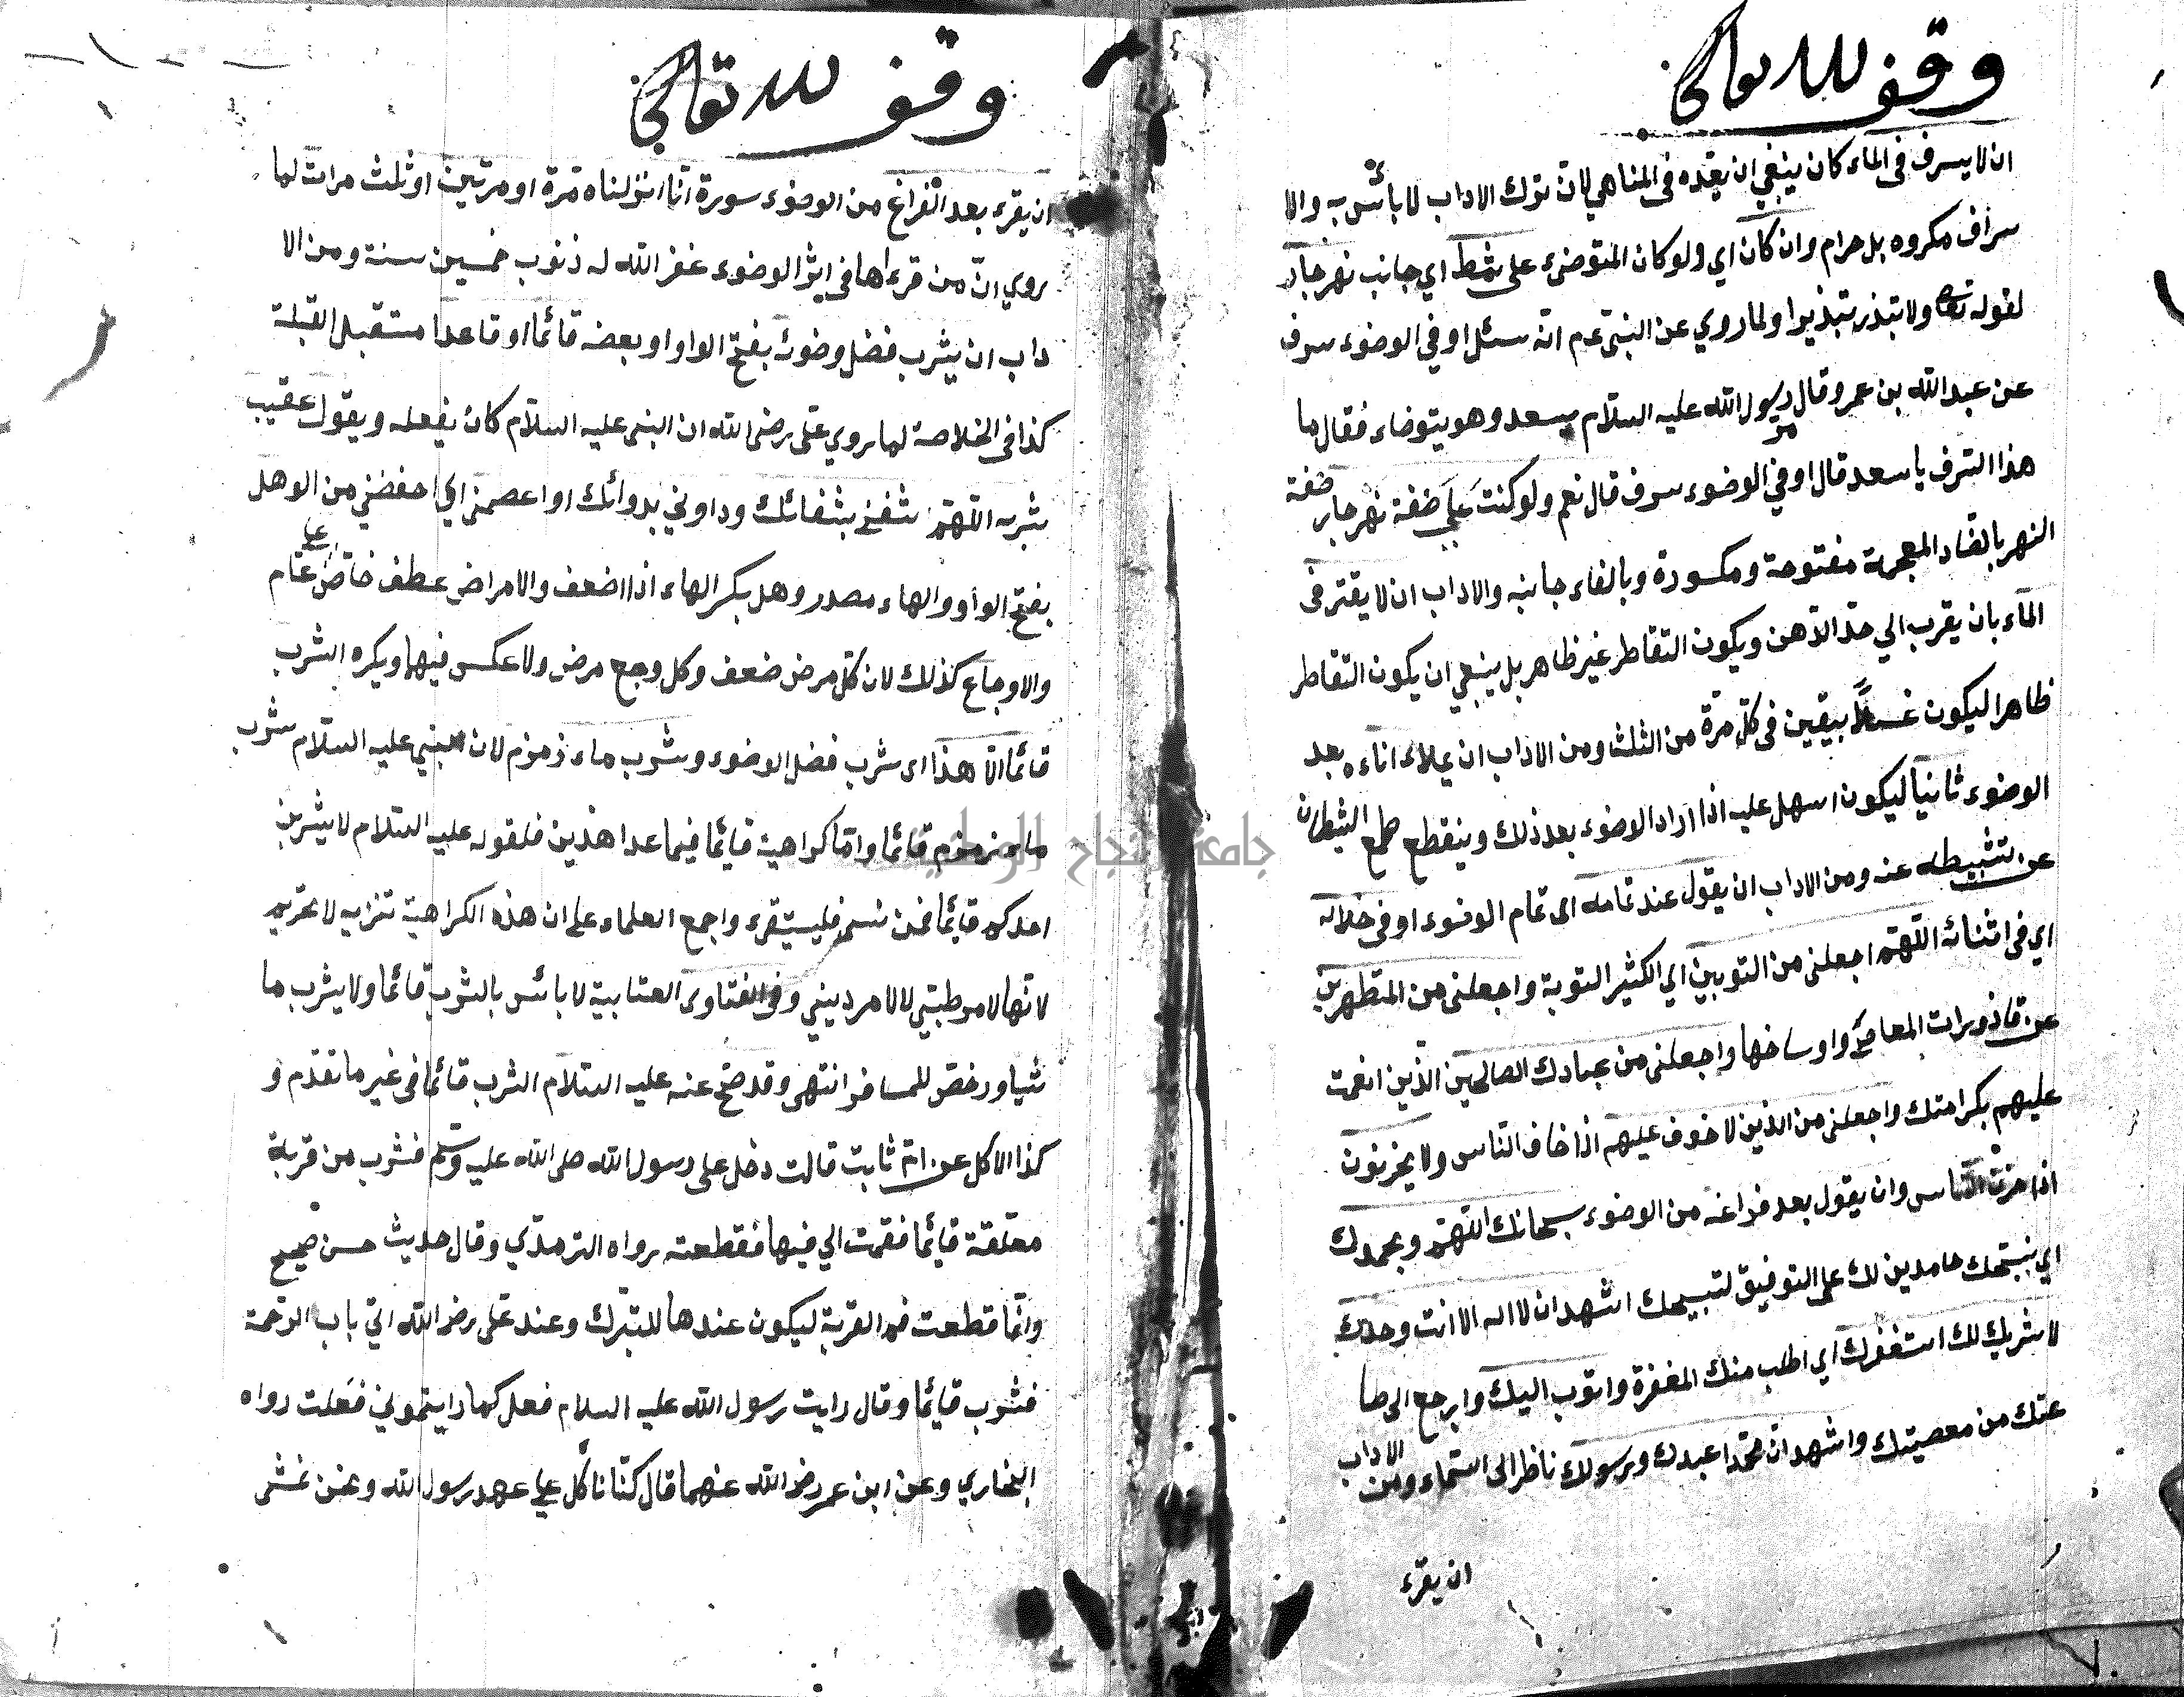 وقف لله تعالى
ان لا يسرف فى الماء كان ينبغي ان يعدّه فى المناهي لانّ ترك الاداب لا بأس به والا
سراف مكروه بل حرام وان كان اي ولو كان المتوضئ على شط اي جانب نهر جار
لقوله تعا ولا تبذر تبذيرا ولما روي عن النبي عم انه سئل اوفي الوضوء سرف
عن عبد الله بن عمر وقال مرّ رسول الله عليه السلام بسعد وهو يتوضاء فقال ما
هذا السّرف يا سعد قال اوفي الوضوء سرف قال نعم ولو كنت على ضفة نهر جار ضفة
النهر بالضاد المعجمة مفتوحة ومكسورة وبالفاء جانبه والاداب ان لا يقتر فى
الماء بان يقرب الي حدّ الدّهن ويكون التقاطر غير ظاهر بل ينبغي ان يكون التقاطر
ظاهرا ليكون غسلاً بيقين فى كلّ مرّة من الثلث ومن الاداب ان يملاء اناءه بعد
الوضوء ثانياً ليكون اسهل عليه اذا اراد الوضوء بعد ذلك وينقطع طمع الشيطان
عن تثبيطه عنه ومن الاداب ان يقول عند تمامه اى تمام الوضوء او فى خلاله
اي فى اثنائه اللّهمّ اجعلنى من التوبين اي الكثير التوبة واجعلنى من المتطهرين
عن قاذورات المعاصي واوساخها واجعلنى من عبادك الصالحين الّذين انعمت
عليهم بكرامتك واجعلنى من الذين لا خوف عليهم اذا خاف النّاس ولا يحزنون
اذا حزن النّاس وان يقول بعد فراغه من الوضوء سبحانك اللّهمّ وبحمدك
اي نسبّحك حامدين لك على التوفيق لتسبيحك اشهد ان لا اله الا انت وحدك
لا شريك لك استغفرك اي اطلب منك المغفرة واتوب اليك وارجع الى طا
عتك من معصيتك واشهد انّ محمّدا عبدك ورسولك ناظرا الى السّماء ومن الاداب
ان يقرء
وقف لله تعالى
ان يقرء بعد الفراغ من الوضوء سورة انّا انزلناه مرّة او مرّتين او ثلث مرات لما
روي انّ من قرءها فى اثر الوضوء غفر الله له ذنوب خمسين سنة ومن الا
داب ان يشرب فضل وضوئه بفتح الواو او بعضه قائما او قاعدا مستقبل القبلة
كذا فى الخلاصة لما روي علىّ رضى الله ان النبى عليه السلام كان يفعله ويقول عقيب
شربه اللّهمّ شفني بشفائك وداوني بدوائك واعصمنى اي احفضني من الوهل
بفتح الواو والهاء مصدر وهل بكسر الهاء اذا اضعف والامراض عطف خاصّ على عامّ
والاوجاع كذلك لان كلّ مرض ضعف وكل وجع مرض ولا عكس فيها ويكره الشرب
قائما الاّ هذا اى شرب فضل الوضوء وشرب ماء زمزم لان النبي عليه السلام شرب
ماء زمزم قائما وامّا كراهية قائما فيما عدا هذين فلقوله عليه السّلام لا يشربن
احدكم قايما فمن نسى فليستقىء واجمع العلماء على ان هذه الكراهية تنزيه لا تحريم
لانّها لامر طبّيّ لا لامر دينيّ وفى الفتاوى العتابية لا بأس بالشّرب قائما ولا يشرب ما
شيا ورخّص للمسافر انتهى وقد صحّ عنه عليه السّلام الشرب قائما فى غير ما تقدّم و
كذا الاكل عن امّ ثابت قالت دخل على رسول الله صلى الله عليه وسلم فشرب من قربة
معلّقة قايما فقمت الي فيها فقطعته رواه الترمذي وقال حديث حسن صحيح
وانّما قطعت فم القربة ليكون عندها للتبرّك وعند علىّ رضى الله اتي باب الرّحمة
فشرب قايما وقال رايت رسول الله عليه السلام فعل كما رايتموني فعلت رواه
البخاري وعن ابن عمر رضى الله عنهما قال كنّا ناكل على عهد رسول الله ونحن نمشى
جامعة النجاح الوطنية